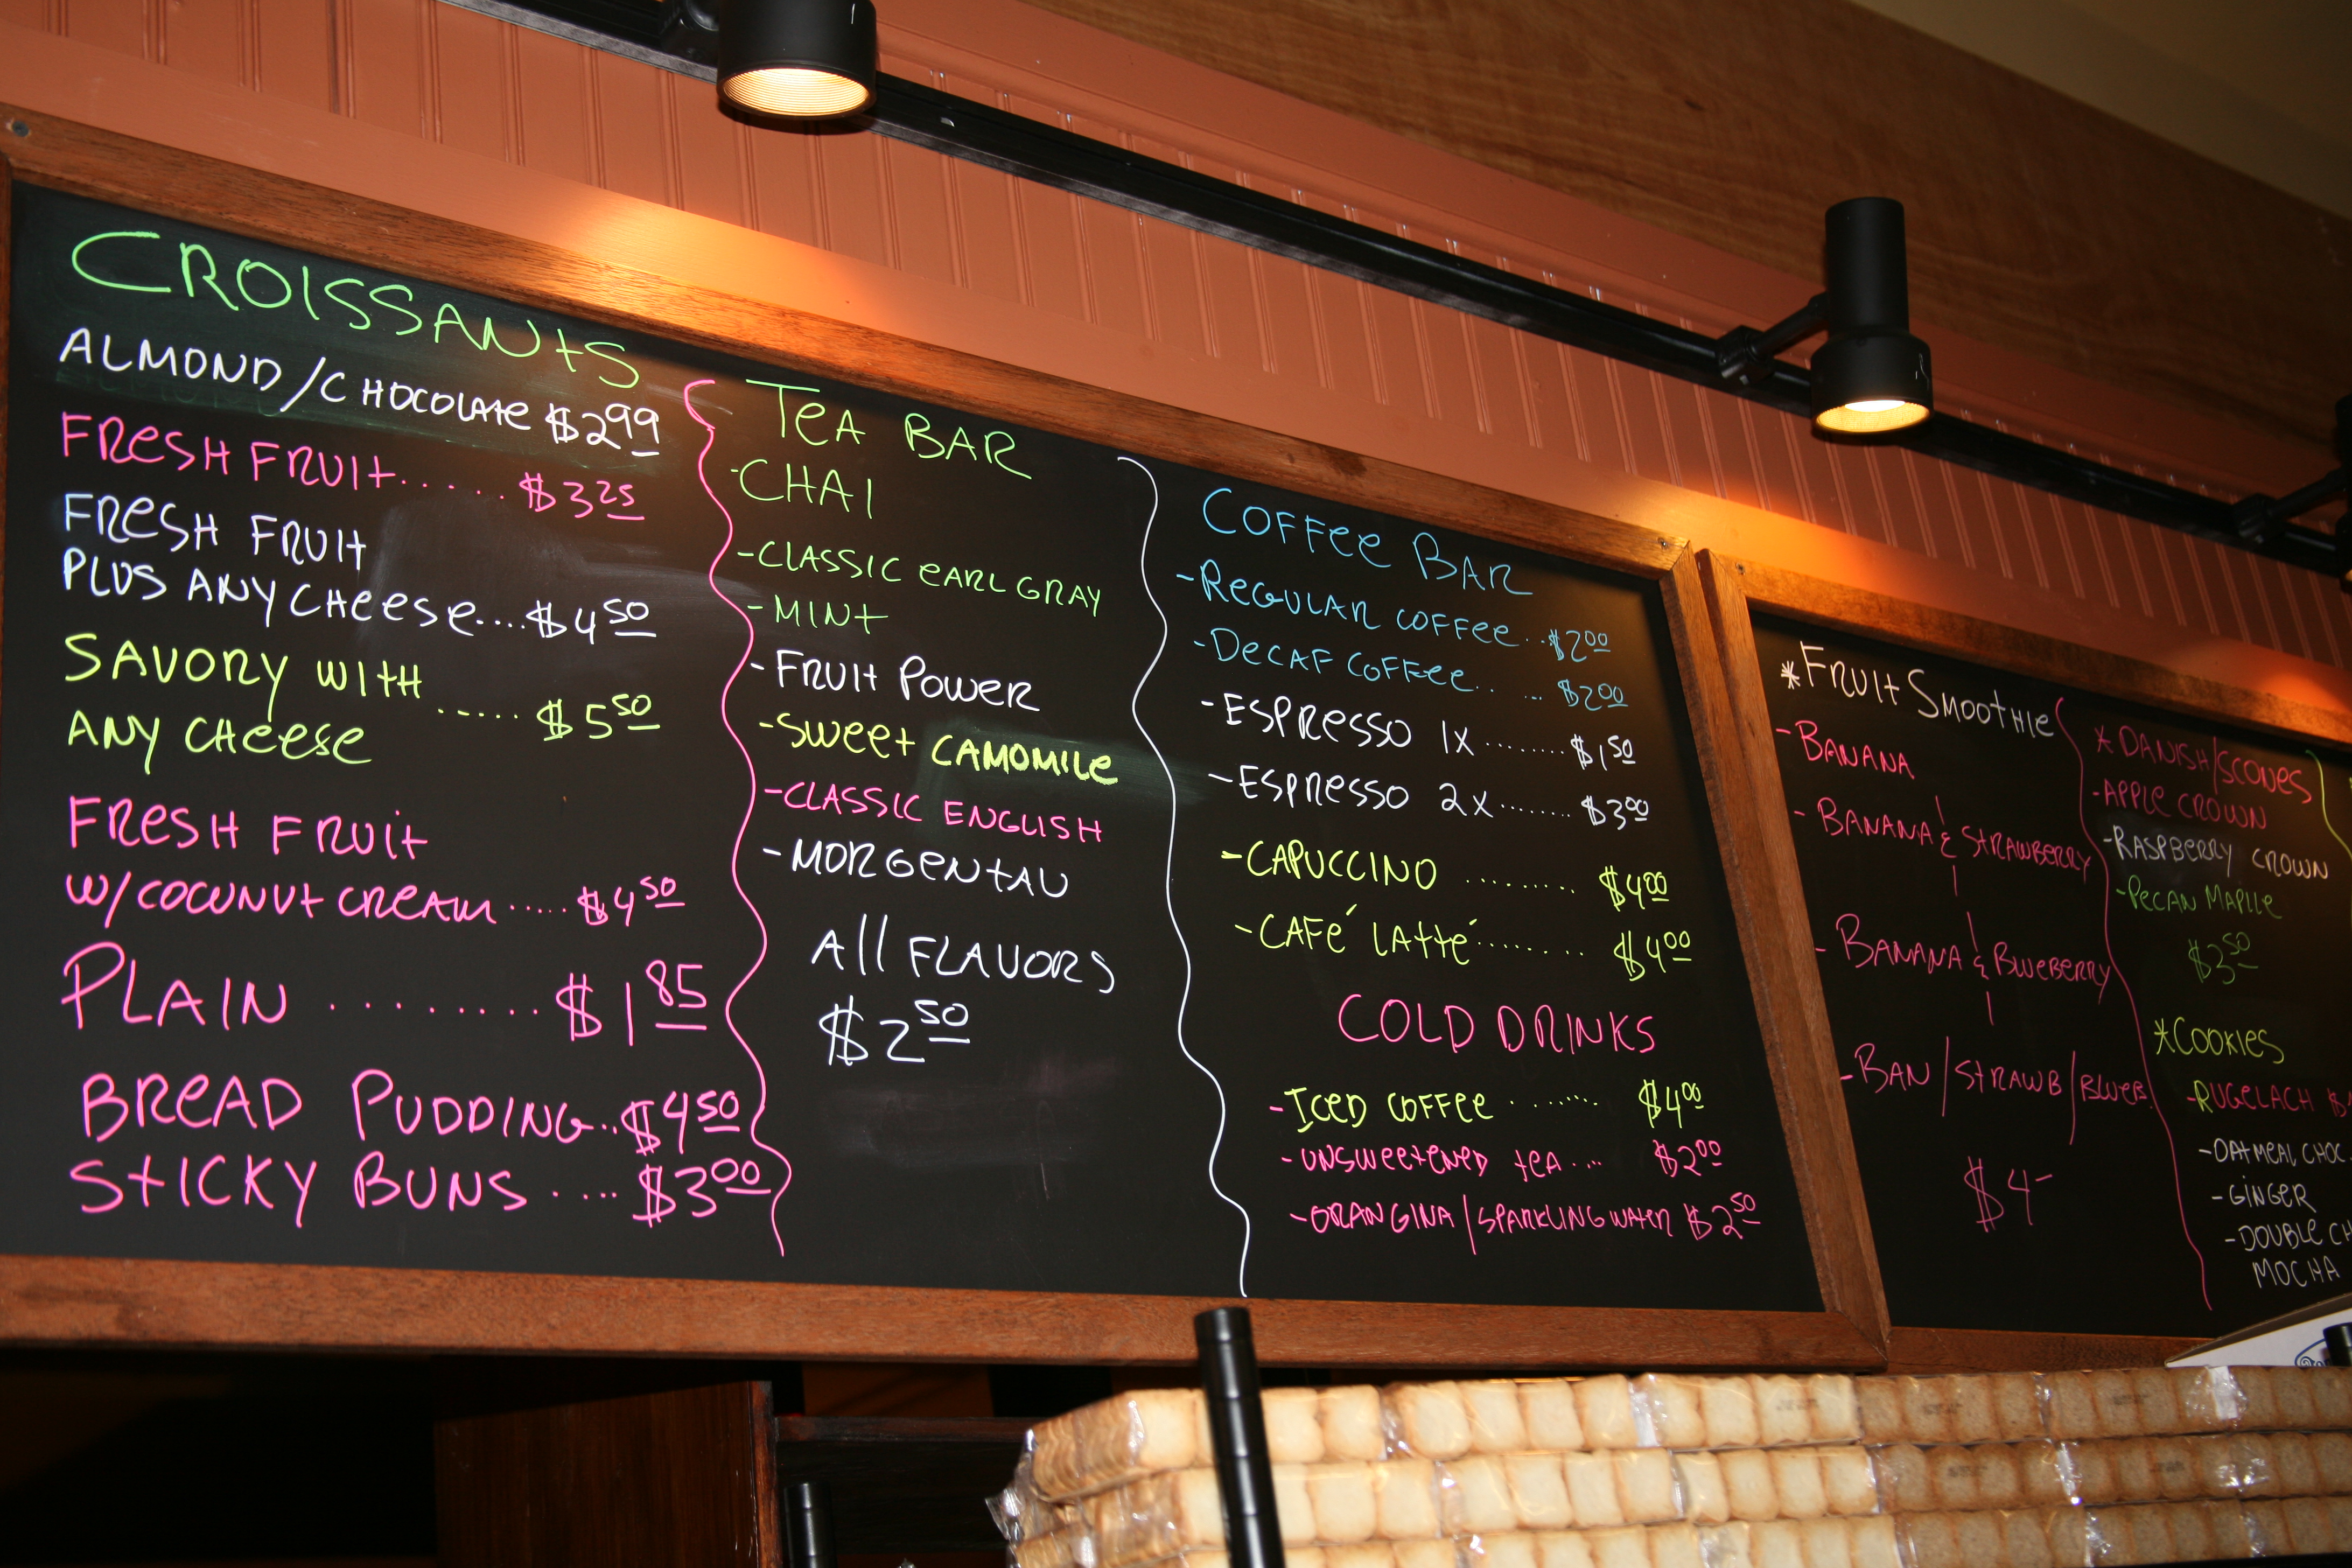 CROISSANTS
ALMOND/CHOCOLATE $299
FRESH FRUIT...... $325
FRESH FRUIT
PLUS ANY CHEESE....$450
SAVORY WITH
ANY CHEESE ..... $550
FRESH FRUIT
W/COCONUT CREAM.....$450
PLAIN ........ $185
BREAD PUDDING..$450
STICKY BUNS .... $300
TEA BAR
-CHAI
-CLASSIC EARL GRAY
-MINT
-FRUIT POWER
-SWEET CAMOMILE
-CLASSIC ENGLISH
-MORGENTAU
All FLAVORS
$250
COFFEE BAR
-REGULAR COFFEE..$200
-DECAF COFFEE.. ... $200
-ESPRESSO 1X ........ $150
-ESPRESSO 2X....... $300
-CAPUCCINO ......... $400
-CAFÉ LATTÉ........ $400
COLD DRINKS
-ICED COFFEE ....... $400
-UNSWEETENED TEA.... $200
-ORANGINA/SPARKLING WATER $250
*FRUIT SMOOTHIE
-BANANA
-BANANA & STRAWBERRY
-BANANA & BLUEBERRY
-BAN/STRAWB/BLUEB
$4-
*DANISH/SCONES
-APPLE CROWN
-RASPBERRY CROWN
-PECAN MAPLLE
$350
*COOKIES
-RUGELACH
-OATMEAL CHOC.
-GINGER
-DOUBLE CH
MOCHA